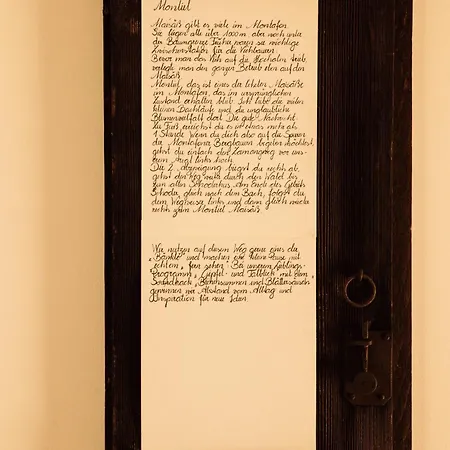 Montiel
Maisäß gibt es viele im Montafon.
Sie liegen alle über 1000m aber noch unter
der Baumgrenze. Früher waren sie wichtige
Zwischenstation für die Viehbauern.
Bevor man das Vieh auf die Hochalm trieb,
verlegte man den ganzen Betrieb auf den
Maisäß.
Montiel, das ist eines der letzten Maisäße
im Montafon das im ursprünglichen
Zustand erhalten blieb. Ich liebe die vielen
kleinen Bachläufe und die unglaubliche
Blumenvielfalt dort. Die gute Nachricht:
Zu Fuß erreichst du es in etwas mehr als
1 Stunde. Wenn du dich also auf die Spuren
der Montafoner Bergbauern begeben möchtest,
gehst du einfach den Zamangweg vor uns-
erem Haus links hoch.
Die 2. Abzweigung biegst du rechts ab,
gehst den Weg weiter durch den Wald bis
zum alten Schoder am Ende des Gebiets
Schoder, gleich nach dem Bach, folgst du
dem Wegkreuz links und dann gleich wieder
rechts zum Montiel Maisäß.
Wir nutzen auf diesem Weg gerne eines der
Bänkle und machen eine kleine Pause mit
echtem „fern sehen“. Bei unserem Lieblings-
Programm „Gipfel- und Talblick mit dem
Soundtrack „Bienensummen und Blätterrauschen“
gewinnen wir Abstand vom Alltag und
Inspiration für neue Ideen.